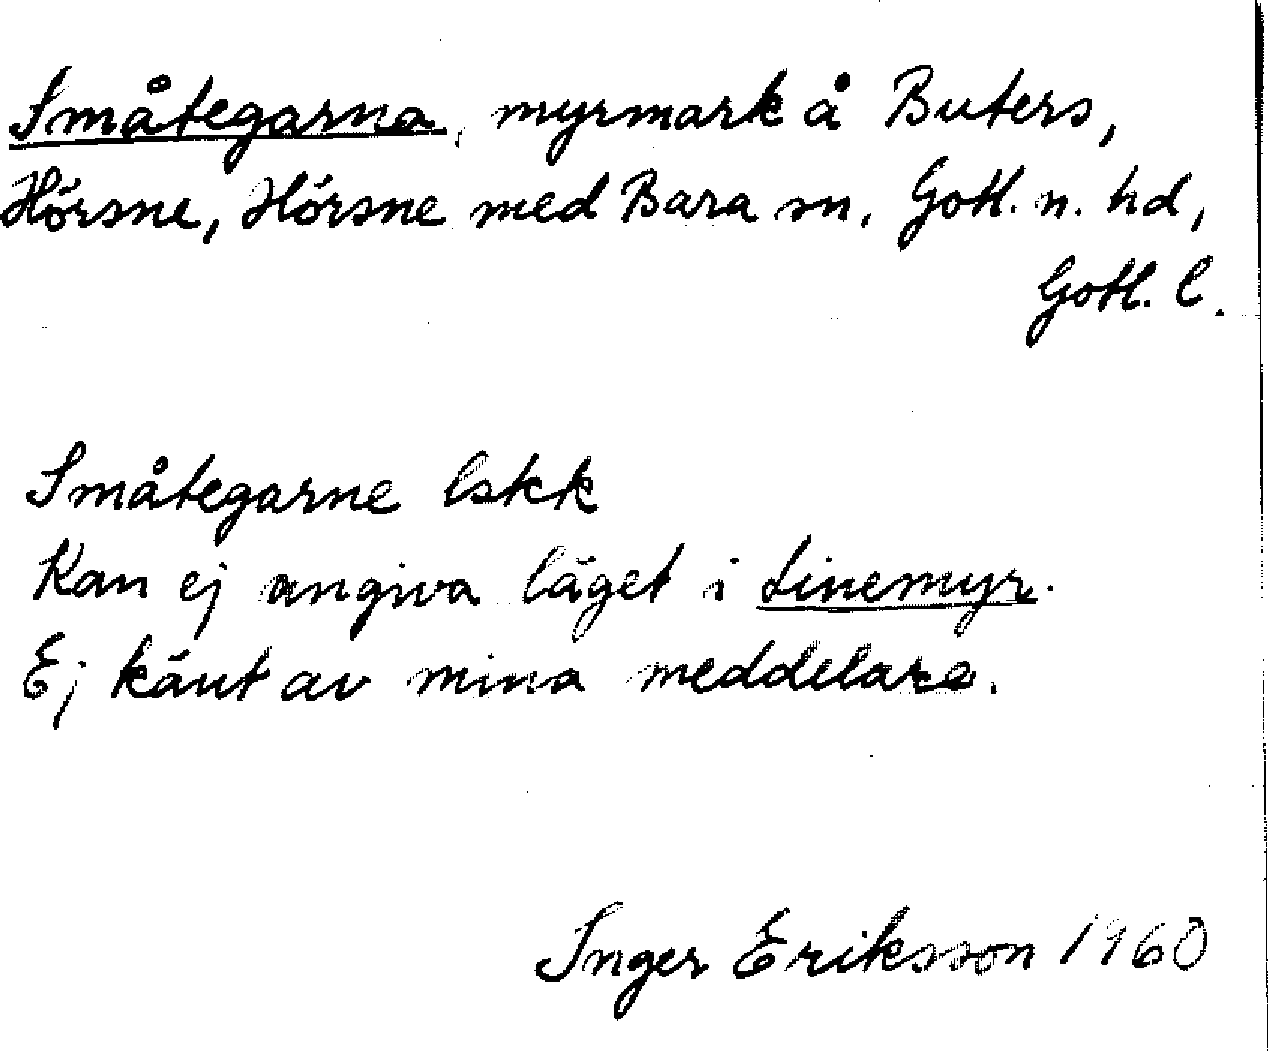 Småtegarna, myrmark å Buters,
Hörsne, Hörsne med Bara sn, Gotl. n. hd,
Gotl. l.
Småtegarne lskk
Kan ej angiva läget i Linemyr.
Ej känt av mina meddelare.
Inger Eriksson 1960